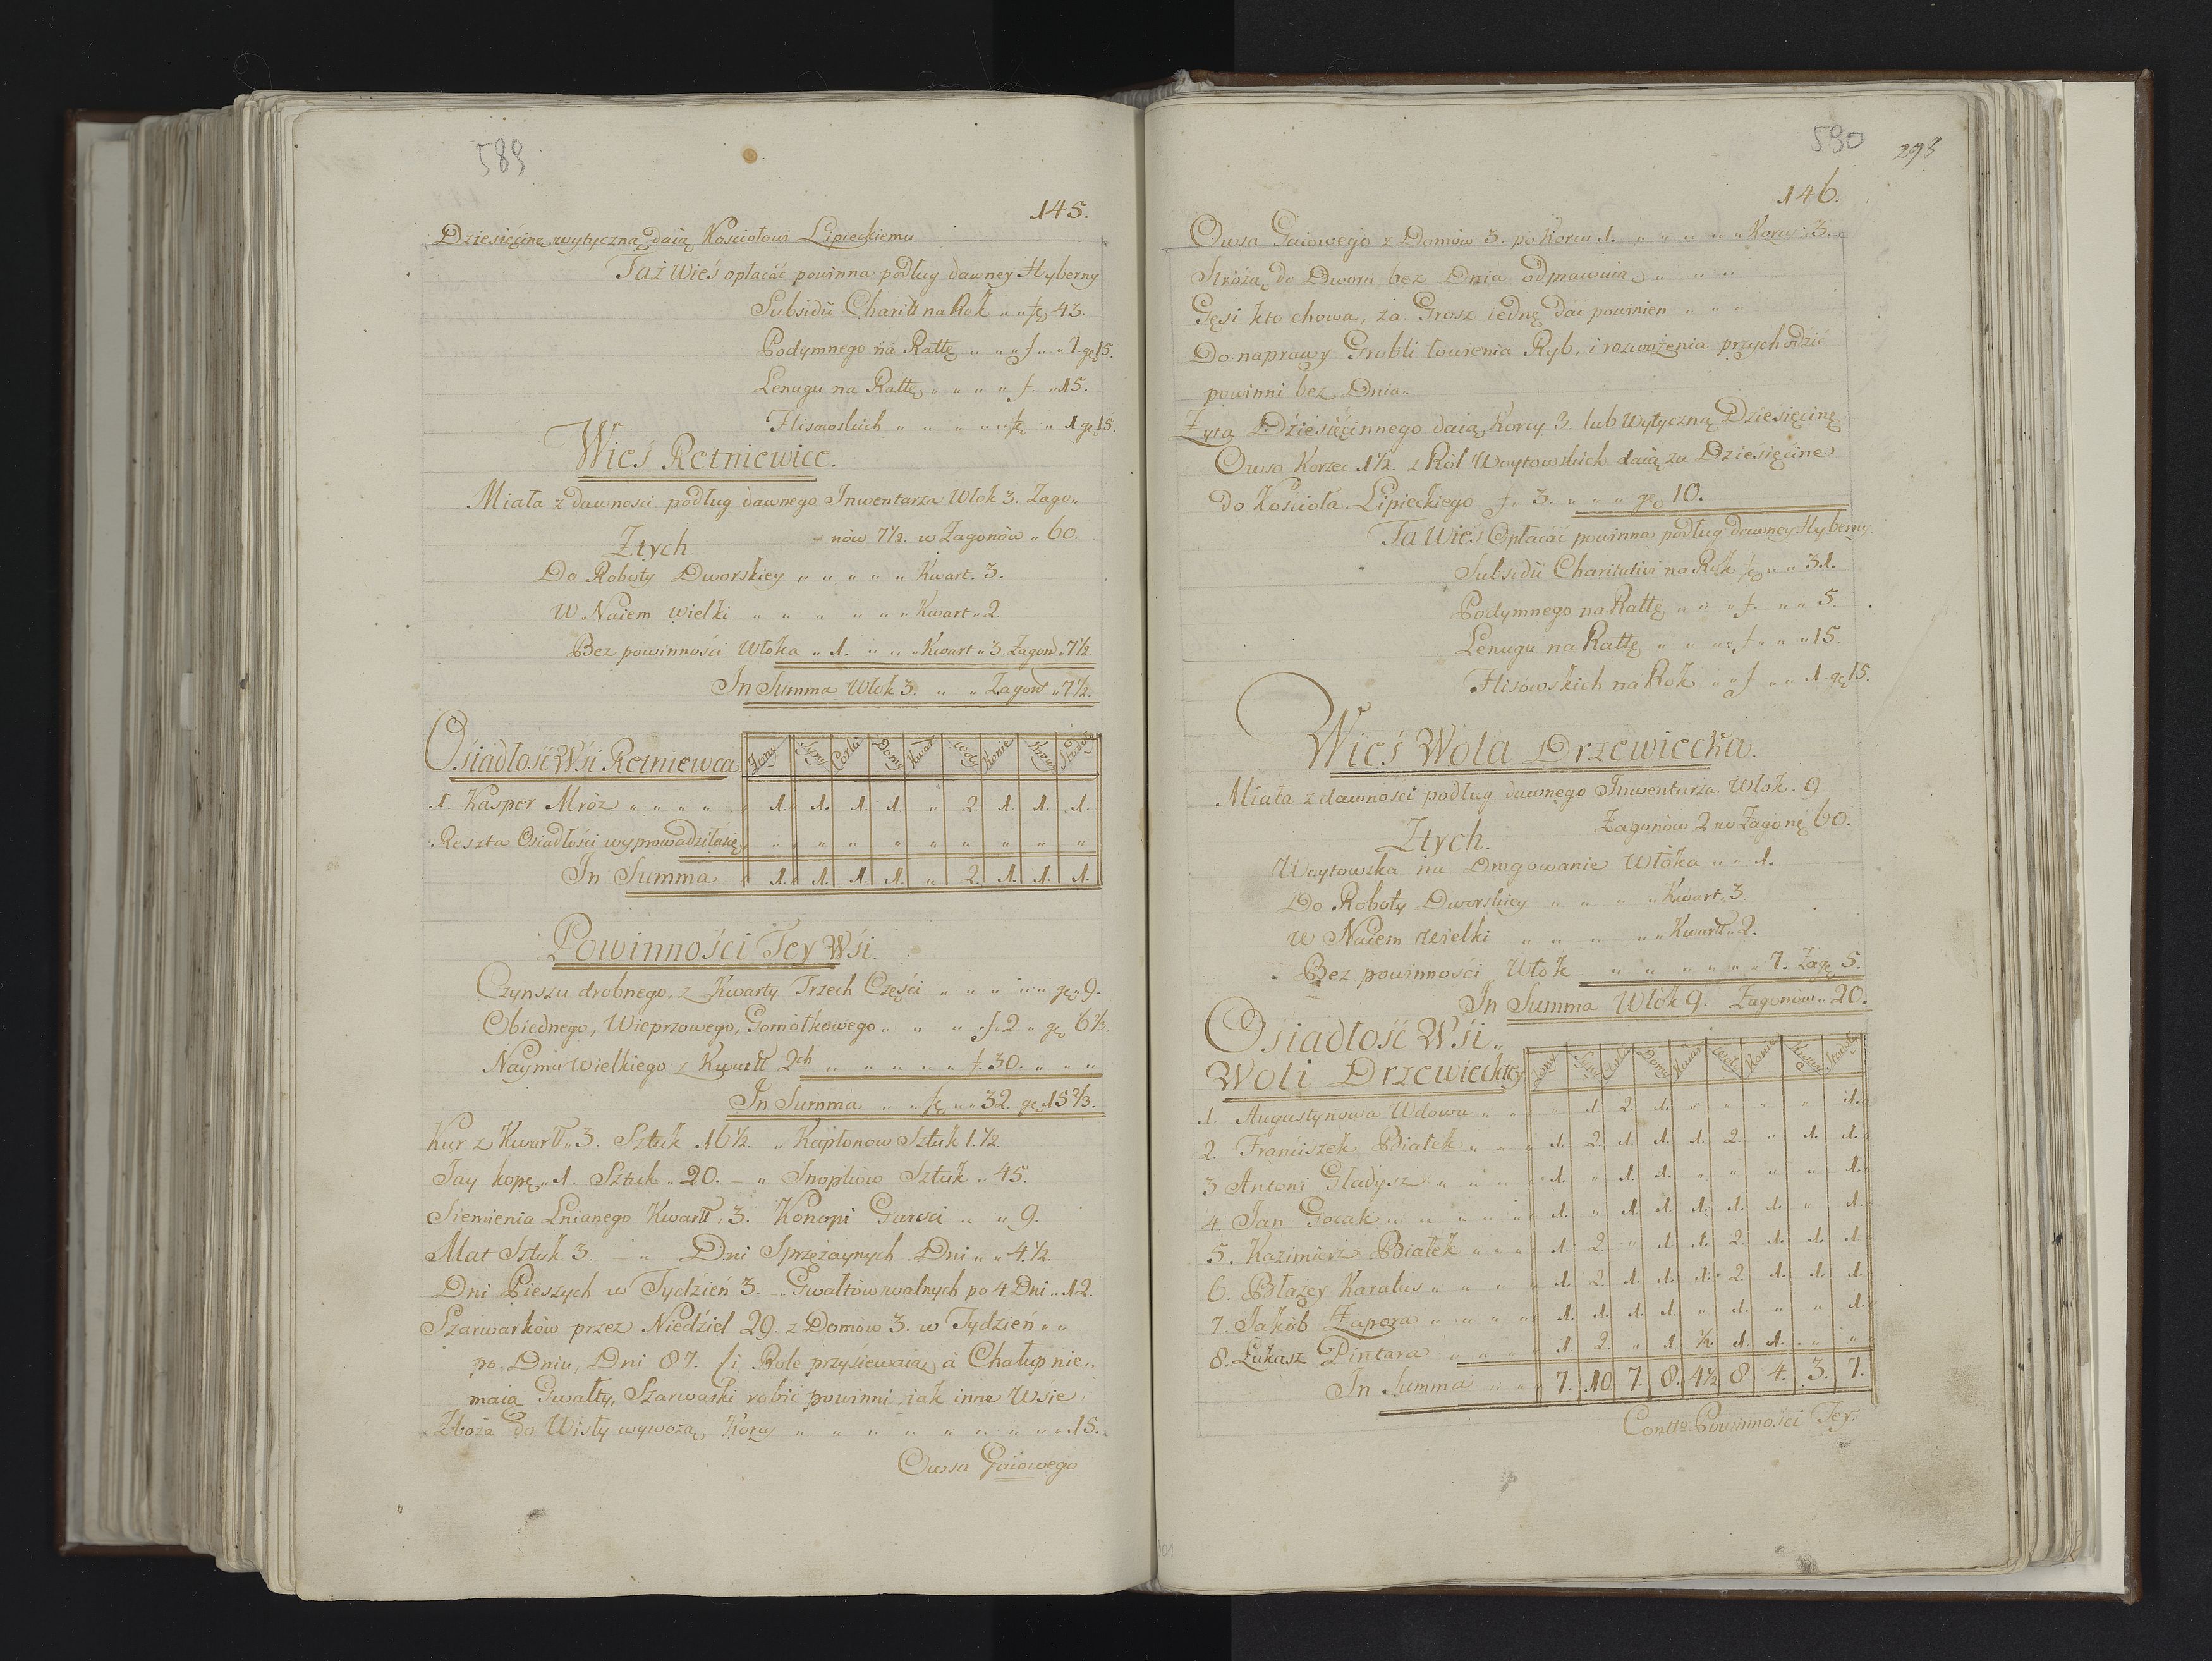 589
145.
Dziesięcinę wytyczną daią Kosciołowi Lipieckiemu
Taż Wieś opłacać powinna podług dawney Hyberny
Subsidii Charitt na Rok „ „ fę 43.
Podymnego na Rattę „ „ „ f „ „ 7. gę 15.
Lenugu na Rattę „ „ „ „ f. „ 15.
Flisowskich „ „ „ „ „ fę „ 1 gę 15.
Wieś Retniewice.
Miała z dawnosci podług dawnego Inwentarza Włok 3. Zago„
nów 7½. w Zagonów „ 60.
Ztych.
Do Roboty Dworskiey „ „ „ „ „ Kwart. 3.
W Naiem wielki „ „ „ „ „ „ Kwart „ 2.
Bez powinności Włoka „ 1. „ „ „ Kwart „ 3. Zagond „ 7½.
In Summa Włok 3. „ „ Zagond „ 7½.
Osiadłość Wśi Retniewca Żony Syny Corki Domy Kwar Woły Konie Krowy Stadoły
1. Kasper Mróz „ „ „ „ „ 1. 1. 1. 1. „ 2. 1. 1. 1.
Reszta Osiadłości wyprowadziłasię „ „ „ „ „ „ „ „ „
In Summa „ 1. 1. 1. 1. „ 2. 1. 1. 1.
Powinności Tey Wśi.
Czynszu drobnego z Kwarty Trzech Części „ „ „ „ „ gę „ 9.
Obiednego, Wieprzowego, Gomółkowego „ „ „ f „ 2. „ gę 6⅔.
Naymu Wielkiego z Kwartt 2ch „ „ „ „ „ f. 30. „ „ „
In Summa „ „ fę „ „ 32. gę 15⅔.
Kur z Kwartt „ 3. Sztuk 16½. „ Kapłonow Sztuk 1.½.
Jay kopę „ 1. Sztuk „ 20. – „ Snopków Sztuk „ 45.
Siemienia Lnianego Kwartt „ 3. Konopi Garści „ „ 9.
Mat Sztuk 3. – „ Dni Sprzężaynych Dni „ „ 4½.
Dni Pieszych w Tydzień 3. – Gwałtów walnych po 4. Dni „ 12.
Szarwarków przez Niedziel 29. z Domów 3. w Tydzień „ „
po Dniu, Dni 87. ſi Role przysiewaią à Chałup nie„
maią Gwałty, Szarwarki robić powinni, iak inne Wsie
Zboża do Wisły wywożą Korcy „ „ „ „ „ „ „ „ 15.
Owsa Gaiowego
590
293
146.
Owsa Gaiowego z Domów 3. po Korcu 1. „ „ „ „ „ Korcy „ 3.
Stróżą do Dworu bez Dnia odprawuią „ „ „
Gęsi kto chowa, za Grosz iednę dać powinien „ „ „
Do naprawy Grobli łowienia Ryb, i rozwożenia przychodzić
powinni bez Dnia.
Żyta Dziesięcinnego daią Korcy 3. lub Wytyczną Dziesięcinę
Owsa Korzec 1½. z Ról Woytowskich daią za Dziesięcinę
do Kościoła Lipieckiego f. 3. „ „ „ gę 10.
Ta Wieś Opłacać powinna podług dawney Hyberny
Subsidii Charitativi na Rok fę „ „ 31.
Podymnego na Rattę „ „ „ f. „ „ 5.
Lenugu na Rattę „ „ „ „ f „ „ „ 15.
Flisowskich na Rok „ „ f „ „ 1. gę 15.
Wieś Wola Drzewiecka.
Miała z dawności podług dawnego Inwentarza Włok. 9
Zagonów 2 w Zagonę 60.
Ztych.
Woytowska na Drogowanie Włóka „ „ 1.
Do Roboty Dworskiey „ „ „ „ Kwart „ 3.
W Naiem Wielki „ „ „ „ „ Kwartt „ 2.
Bez powinności Włok „ „ „ „ „ „ 7. Zagę 5.
In Summa Włók 9. Zagonów „ 20.
Osiadłość Wśi„
Woli Drzewieckiey Żony Syny Corki Domy Kwar Woły Konie Krowy Stadoły
1. Augustynowa Wdowa „ „ „ „ 1. 2. 1. „ „ „ „ 1.
2. Franciszek Białek „ „ „ 1. 2. 1. 1. 1. 2. „ 1. 1.
3. Antoni Gładysz „ „ „ „ 1. „ 1. 1. „ „ „ „ 1.
4. Jan Gocak „ „ „ „ „ 1. „ 1. 1. 1. 1. 1. „ 1.
5. Kazimierz Białek „ „ „ 1. 2. „ 1. 1. 2. 1. 1. 1.
6. Błażey Karaluś „ „ „ „ 1. 2. 1. 1. 1. 2. 1. 1. 1.
7. Jakób Zupora „ „ „ „ 1. 1. 1. 1. „ 1. „ „ 1.
8. Łukasz Pintara „ „ „ „ 1. 2. „ 1. ½. 1. 1. „ „
In Summa „ „ „ 7. 10. 7. 8. 4½ 8 4. 3. 7.
Contto Powinności Tey.